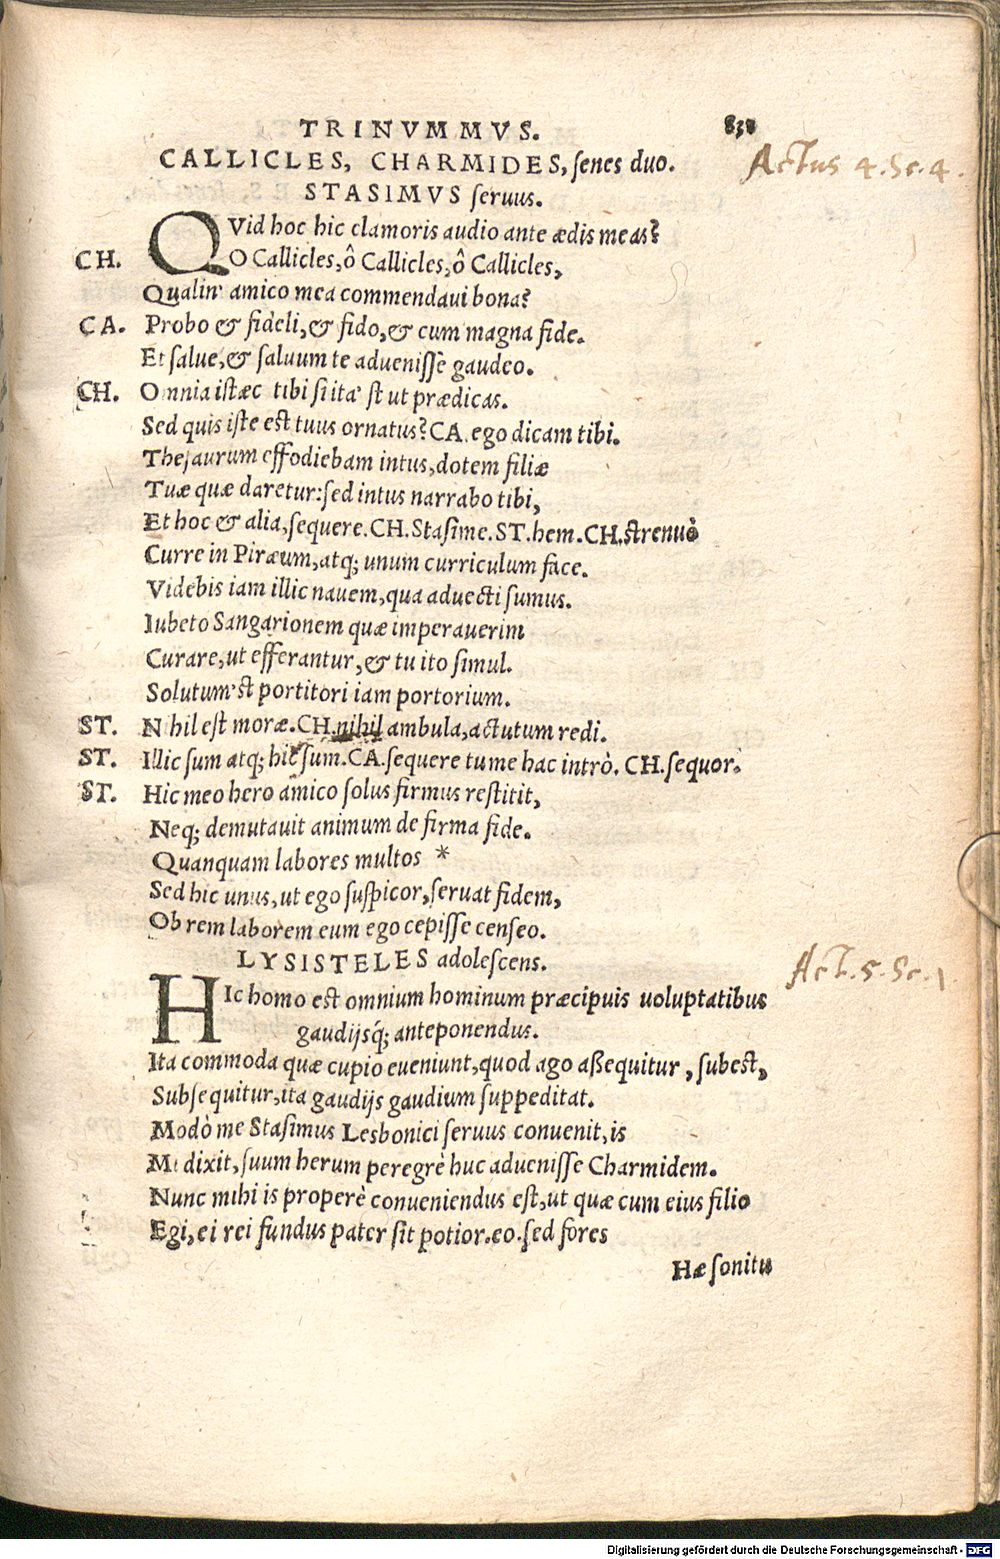 TRINVMMVS. 838
Actus 4. Sc. 4.
CALLICLES, CHARMIDES, ſenes duo.
STASIMVS ſeruus.
QVid hoc hic clamoris audio ante ædis meas?
CH. O Callicles, ô Callicles, ô Callicles,
Qualin' amico mea commendaui bona?
CA. Probo & fideli, & fido, & cum magna fide.
Et ſalue, & ſaluum te adueniſſe gaudeo.
CH. Omnia iſtæc tibi ſi ita' ſt ut prædicas.
Sed quis iſte eſt tuus ornatus? CA. ego dicam tibi.
Theſaurum effodiebam intus, dotem filiæ
Tuæ quæ daretur: ſed intus narrabo tibi,
Et hoc & alia, ſequere. CH. Staſime. ST. hem. CH. ſtrenuè
Curre in Piræum, atq; unum curriculum face.
Videbis iam illic nauem, qua aduecti ſumus.
Iubeto Sangarionem quæ imperauerim
Curare, ut efferantur, & tu ito ſimul.
Solutum'ſt portitori iam portorium.
ST. Nihil eſt moræ. CH. nihil ambula, actutum redi.
ST. Illic ſum atq; hic ſum. CA. ſequere tu me hac intrò. CH. ſequor.
ST. Hic meo hero amico ſolus firmus reſtitit,
Neq; demutauit animum de firma fide.
Quanquam labores multos *
Sed hic unus, ut ego ſuſpicor, ſeruat fidem,
Ob rem laborem eum ego cepiſſe cenſeo.
LYSISTELES adoleſcens.
Act. 5. Sc. 1
HIc homo eſt omnium hominum præcipuis uoluptatibus
gaudijsq́; anteponendus.
Ita commoda quæ cupio eueniunt, quod ago aßequitur, ſubeſt,
Subſequitur, ita gaudijs gaudium ſuppeditat.
Modò me Staſimus Lesbonici ſeruus conuenit, is
Mi dixit, ſuum herum peregrè huc adueniſſe Charmidem.
Nunc mihi is properè conueniendus eſt, ut quæ cum eius filio
Egi, ei rei fundus pater ſit potior. eo. ſed fores
Hæ ſonitu
Digitalisierung gefördert durch die Deutsche Forschungsgemeinschaft - DFG